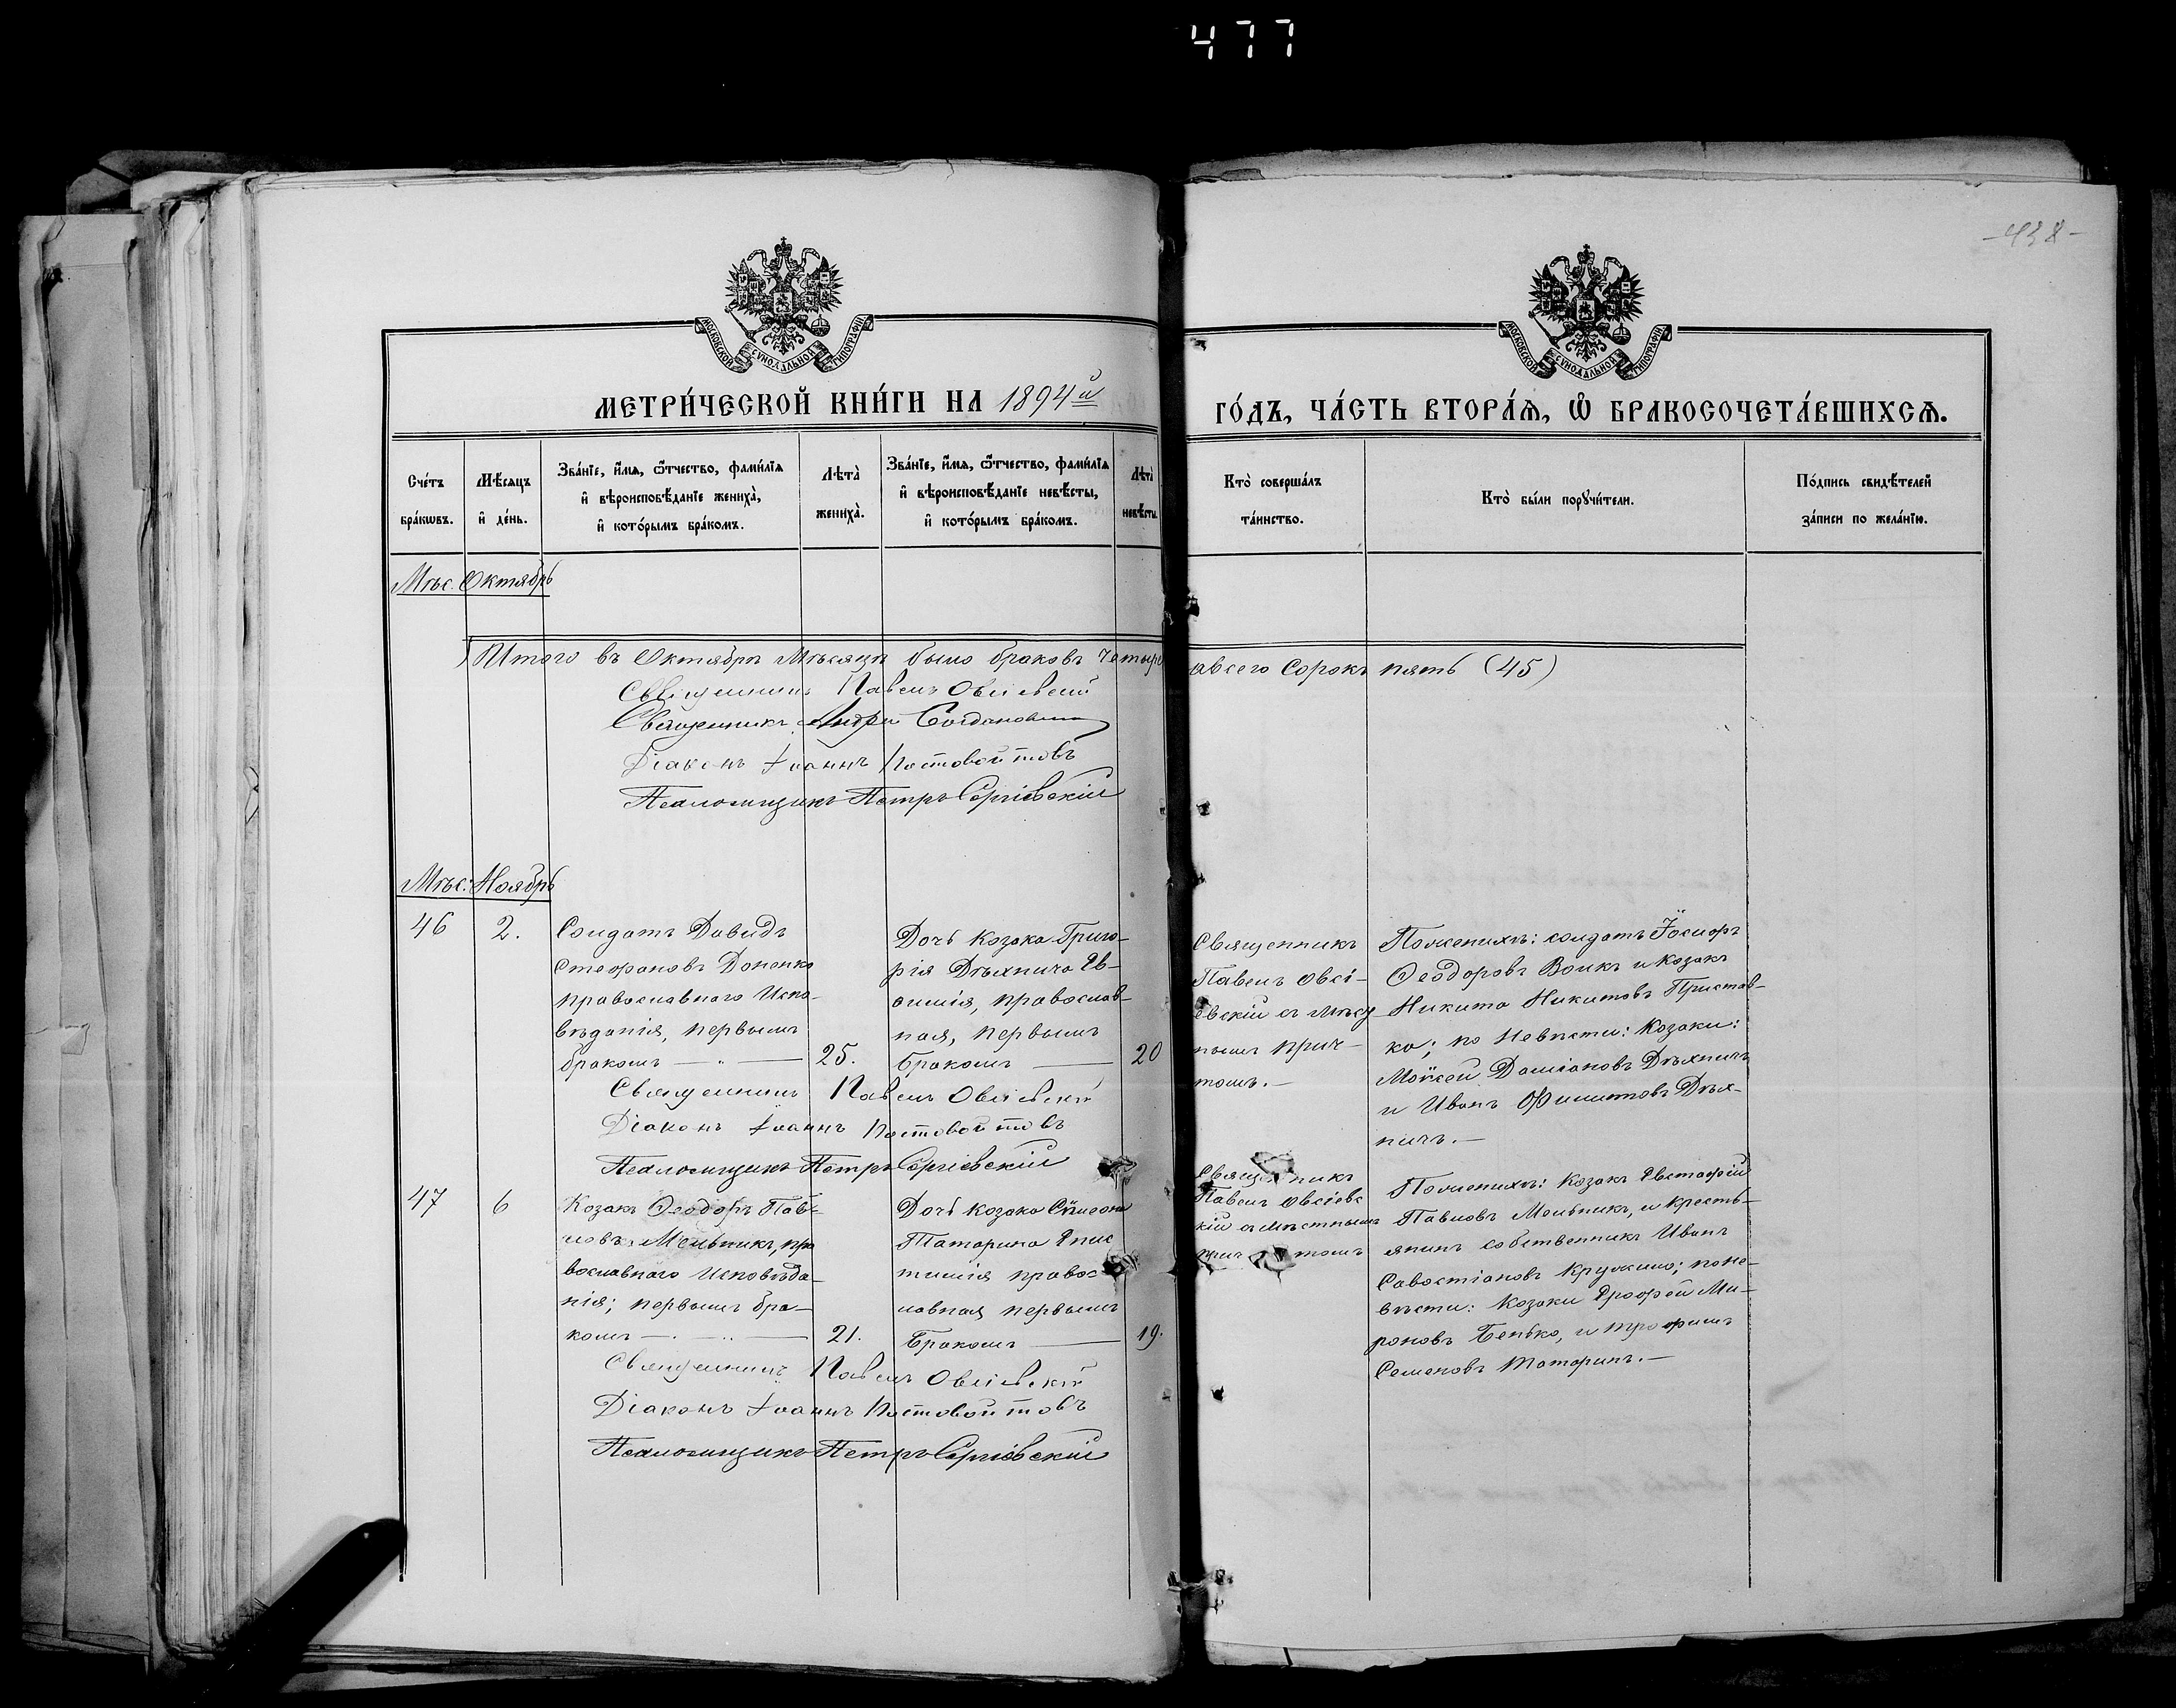 477
-438-
МОСКОВСКОЙ СѴНОДАЛЬНОЙ ТИПОГРАФІИ
МОСКОВСКОЙ СѴНОДАЛЬНОЙ ТИПОГРАФІИ
МЕТРИ́ЧЕСКОЙ КНИ́ГИ НА 1894й
ГО́ДЪ, ЧА́СТЬ ВТОРА́Ѧ, Ѽ БРАКОСОЧЕТА́ВШИХСѦ.
Сче́тъ бра́кωвъ.
Мѣ́сяцъ и҆ де́нь.
Зва́нїе, и҆́мя, ѻ҆́тчество, фами́лїя
и҆ вѣроисповѣ́данїе жениха̀,
и҆ кото́рымъ бра́комъ.
Лѣта̀ жениха̀.
Зва́нїе, и҆́мя, ѻ҆́тчество, фами́лїя
и҆ вѣроисповѣ́данїе невѣ́сты,
и҆ кото́рымъ бра́комъ.
Лѣта̀ невѣ́сты.
Кто̀ соверша́лъ
та́инство.
Кто̀ бы́ли порꙋчи́тели.
По́дпись свидѣ́телей
за́писи по жела́нїю.
Мѣс. Октябрь
Итого въ Октябрѣ Мѣсяцѣ было браковъ четыре
авсего Сорокъ пять (45)
Священникъ Павелъ Овсіевскій
Священникъ Андрей Богдановичъ
Діаконъ Іоаннъ Постовойтовъ
Псаломщикъ Петръ Сергіевскій
Мѣс: Ноябрь
46
2.
Солдатъ Давидъ
Стефановъ Доненко
православнаго Испо-
вѣданія, первымъ
бракомъ — " —
25.
Дочь Козака Григо-
рія Дѣхнича Ев-
фимія, православ-
ная, первымъ
бракомъ —
20
Священникъ
Павелъ Овсі-
евскій съ мѣсу
нымъ прич-
томъ. —
Поженихѣ: солдатъ Іосифъ
Феодоровъ Волкъ и Козакъ
Никита Никитовъ Пристав-
ка; по Невѣсти: Козаки:
Моисей Даміановъ Дѣхничъ
и Иванъ Филиповъ Дѣх-
ничъ. —
Священникъ Павелъ Овсіевскій
Діаконъ Іоаннъ Постовойтовъ
Псаломщикъ Петръ Сергіевскій
47
6
Козакъ Феодоръ Пав-
ловъ Мельникъ, пра
вославнаго Исповѣда-
нія; первымъ бра-
комъ — . — .. —
21.
Дочь Козака Сѵмеона
Татарина Епис
тимія правос
лавная первымъ
Бракомъ —
19.
Священникъ
Павелъ Овсіевс
кій съ мѣстнымъ
причтомъ
Поженихѣ: Козакъ Евстафій
Павловъ Мельникъ, и кресть-
янинъ собственникъ Иванъ
Савостіановъ Кружило; поне-
вѣсти: Козаки Ерофей Ми-
роновъ Бенько, и Трофимъ
Семеновъ Татаринъ. —
Священникъ Павелъ Овсіевскій
Діаконъ Іоаннъ Постовойтовъ
Псаломщикъ Петръ Сергіевскій